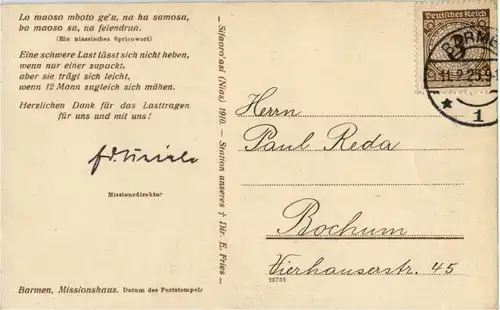 Lo maoso mboto ge'u, na ha samosa,
ba maoso sa, na felendrua.
(Ein niassisches Sprichwort)
Eine schwere Last lässt sich nicht heben,
wenn nur einer zupackt,
aber sie trägt sich leicht,
wenn 12 Mann zugleich sich mühen.
Herzlichen Dank für das Lasttragen
für uns und mit uns!
Missionsdirektor
Barmen, Missionshaus. Datum des Poststempels
Sifaoro'asi (Nias) 1910. — Station unseres † Dir. E. Fries —
Deutsches Reich
BARMEN
1
Herrn
Paul Reda
Bochum
Vierhauserstr. 45